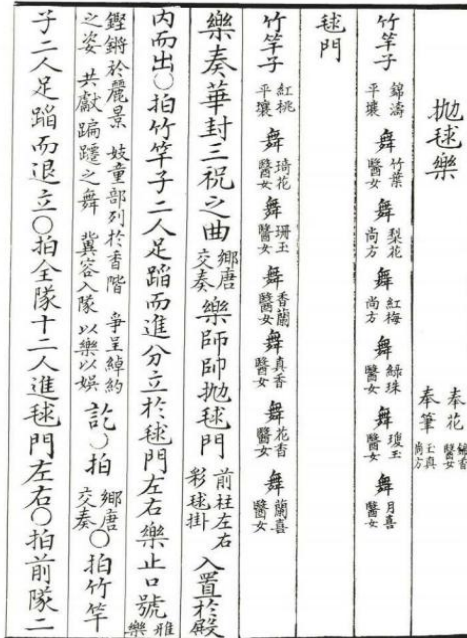 抛毬樂
奉花 錦香 醫女
奉筆 玉真 尚方
竹竿子 錦濤 平壤 舞 竹葉 醫女 舞 梨花 尚方 舞 紅梅 尚方 舞 綠珠 醫女 舞 瓊玉 醫女 舞 月喜 醫女
毬門
竹竿子 紅桃 平壤 舞 琦花 醫女 舞 珊玉 醫女 舞 香蘭 醫女 舞 真香 醫女 舞 花香 醫女 舞 蘭喜 醫女
樂奏華封三祝之曲 鄉唐交奏 樂師帥抛毬門 前柱左右彩毬掛 入置於殿
内而出○拍竹竿子二人足蹈而進分立於毬門左右樂止口號 雅樂
鏗鏘於麗景 妓童部列於香階 爭呈綽約
之姿 共獻蹁躚之舞 冀容入隊 以樂以娛 訖○拍 鄉唐交奏 ○拍竹竿
子二人足蹈而退立○拍全隊十二人進毬門左右○拍前隊二